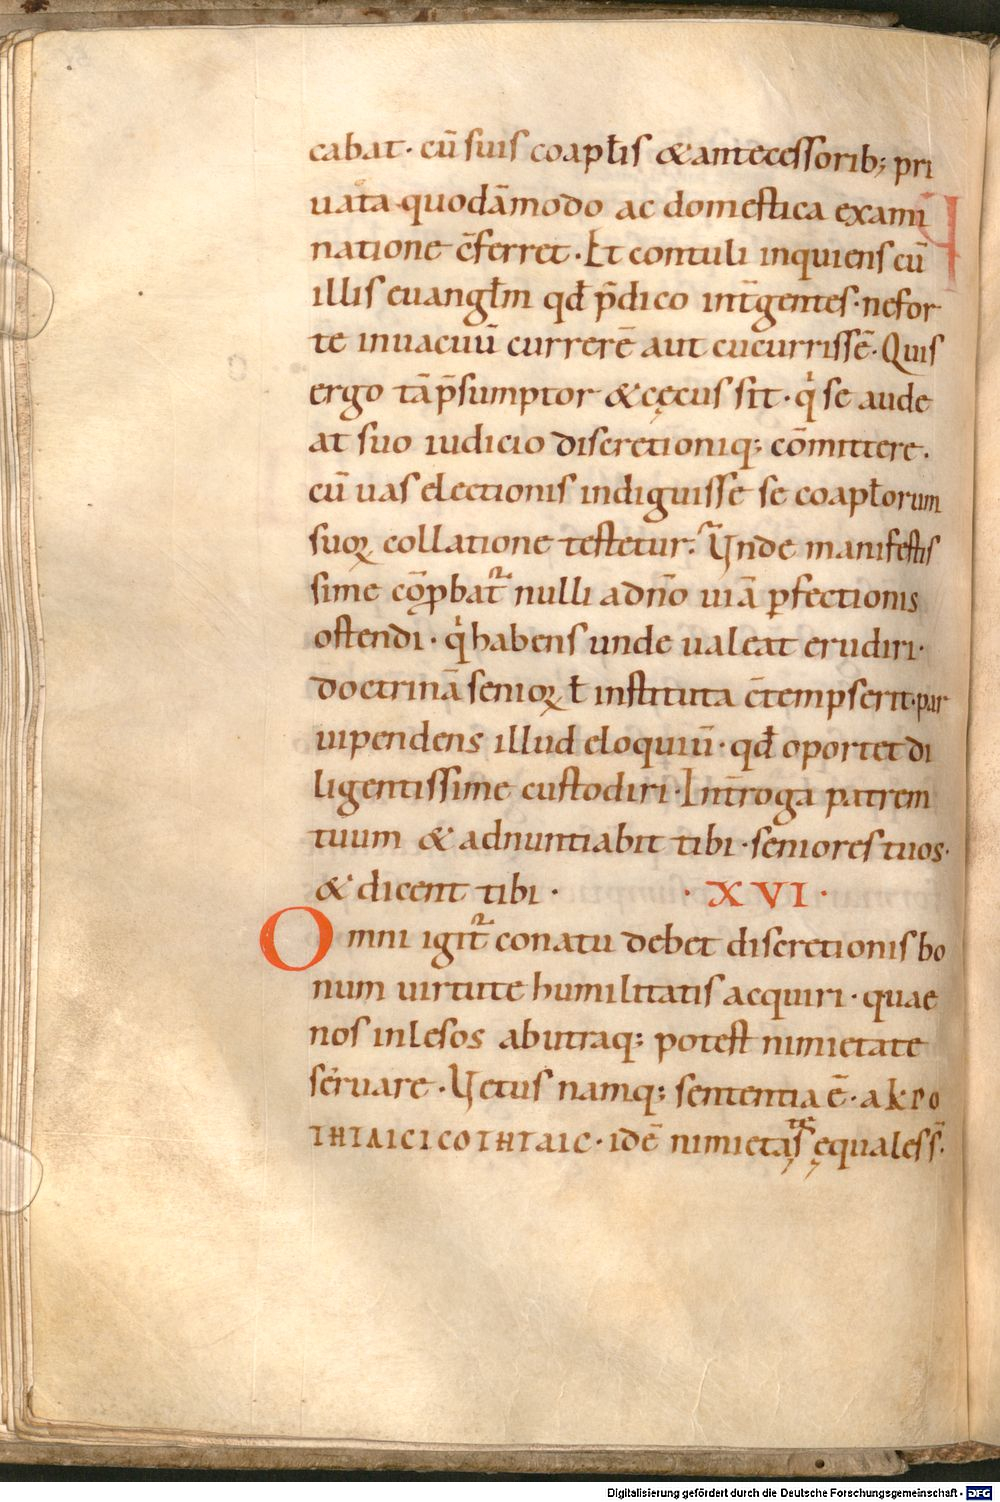 cabat · cū suis coapl̄is & antecessorib; pri
uata quodāmodo ac domestica exami
natione c̄ferret · Et contuli inquiens cū
illis euangl̄m qđ p̄dico int̄ gentes · ne for
te inuacuū currerē aut cucurrissē · Quis
ergo tā p̄sumptor & cęcus sit · q̇ se aude
at suo iudicio discretioniq; cōmittere ·
cū uas electionis indiguisse se coapl̄orum
suoꝝ collatione testetur · Unde manifestis
sime cōꝓbat᷑ nulli ad n̄o uiā ꝑfectionis
ostendi · q̇ habens unde ualeat erudiri ·
doctrinā senioꝝ ł instituta c̄tempserit · par
uipendens illud eloquiū · qđ oportet di
ligentissime custodiri · Int̄roga patrem
tuum & adnuntiabit tibi · seniores tuos ·
& dicent tibi · · XVI ·
Omni igit᷑ conatu debet discretionis bo
num uirtute humilitatis acquiri · quae
nos inlesos ab utraq; potest nimietate
seruare · Uetus namq; sententia ē · akpo
ΤΗΤΑΙCΙCΟΤΗΤΑΙC · id ē nimietates ęquales s̄ ·
Digitalisierung gefördert durch die Deutsche Forschungsgemeinschaft - DFG